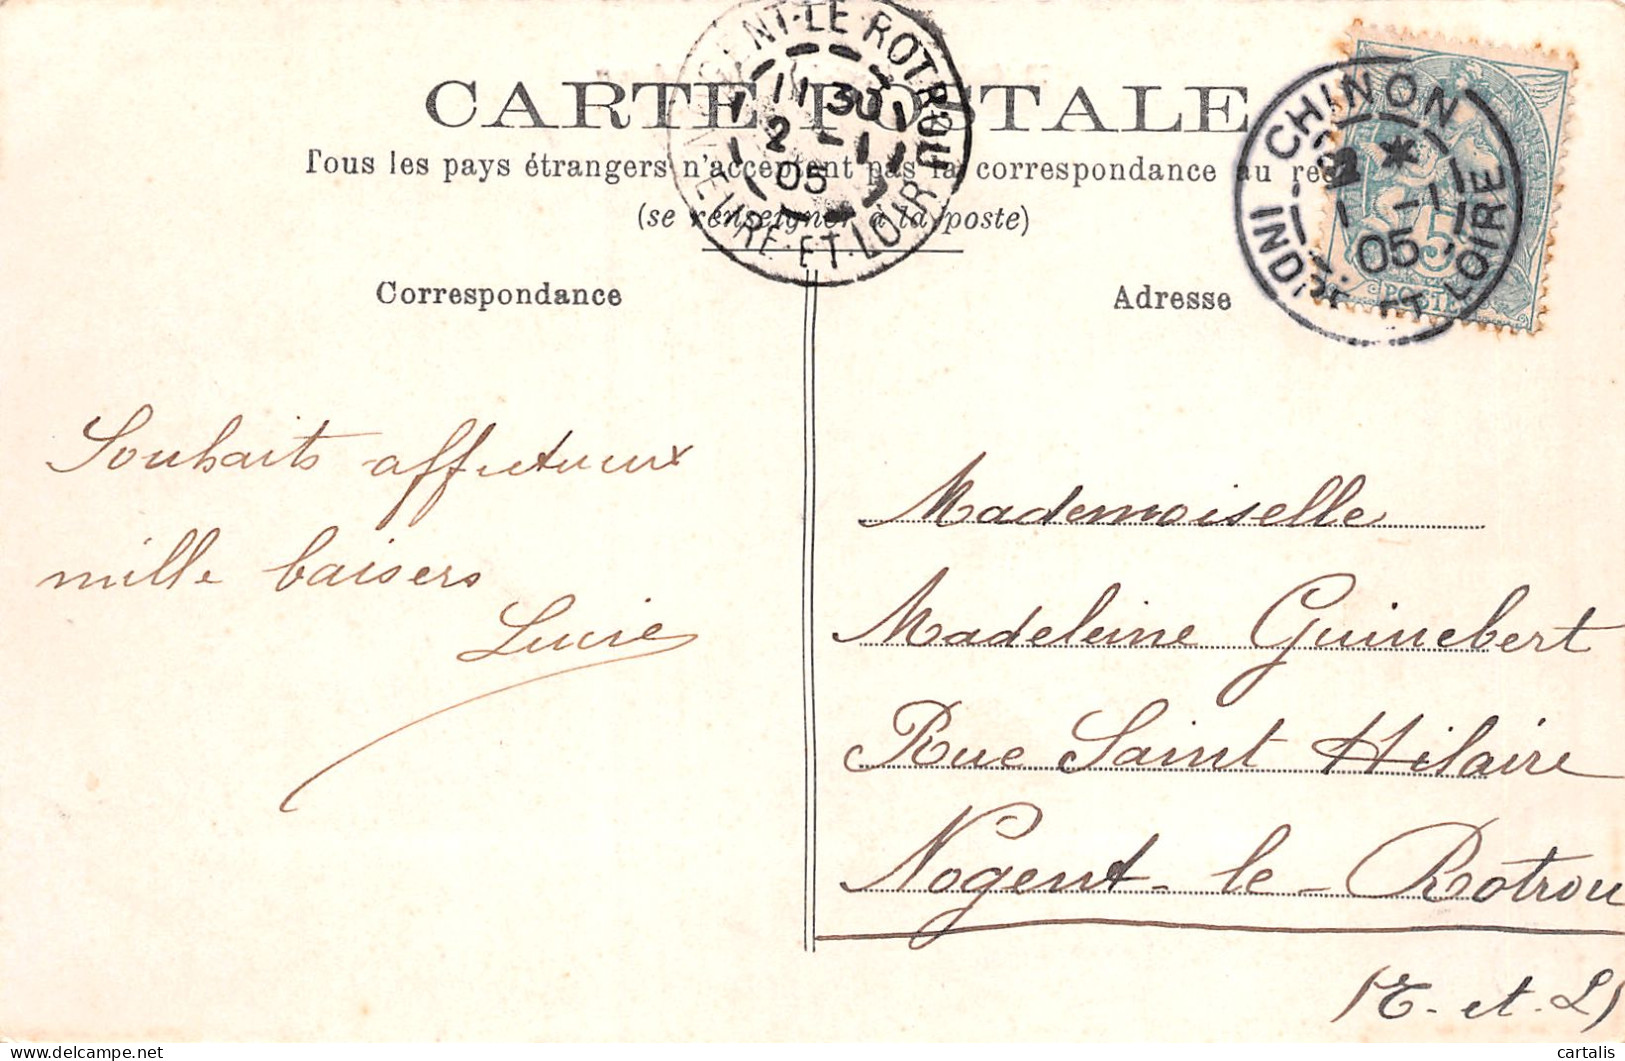 CARTE POSTALE
Tous les pays étrangers n'acceptent pas la correspondance au
(se renseigner à la poste)
NOGENT-LE-ROTROU
11 30
2 -1
05
EURE-ET-LOIR
CHINON
1 -1
05
INDRE ET LOIRE
5
POSTES
Correspondance
Adresse
Souhaits affectueux
mille baisers
Lucie
Mademoiselle
Madeleine Guinebert
Rue Saint Hilaire
Nogent-le-Rotrou
(E. et. L)
delcampe.net
cartalis